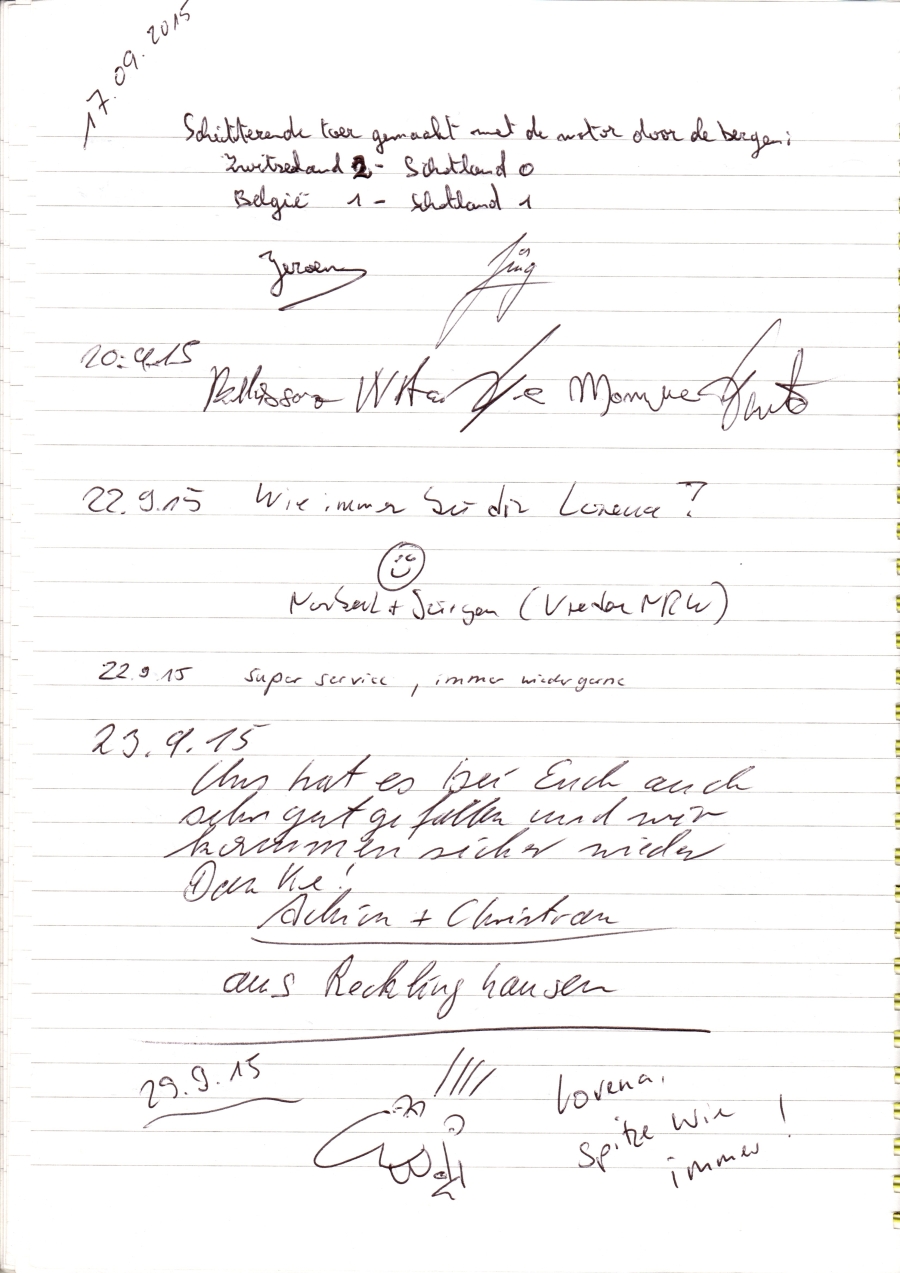 17.09.2015
Schitterende toer gemaakt met de motor door de bergen:
Zwitserland 2 - Schotland 0
België 1 - Schotland 1
Jeroen Jürg
20.9.15
Monique
22.9.15 Wie immer bei dir Lorena?
Norbert + Jürgen (Vreden NRW)
22.9.15 super service, immer wieder gerne
23.9.15
Uns hat es bei Euch auch
sehr gut gefallen und wir
kommen sicher wieder
Danke!
Achim + Christian
aus Recklinghausen
29.9.15
Lorena,
Spitze wie
immer!